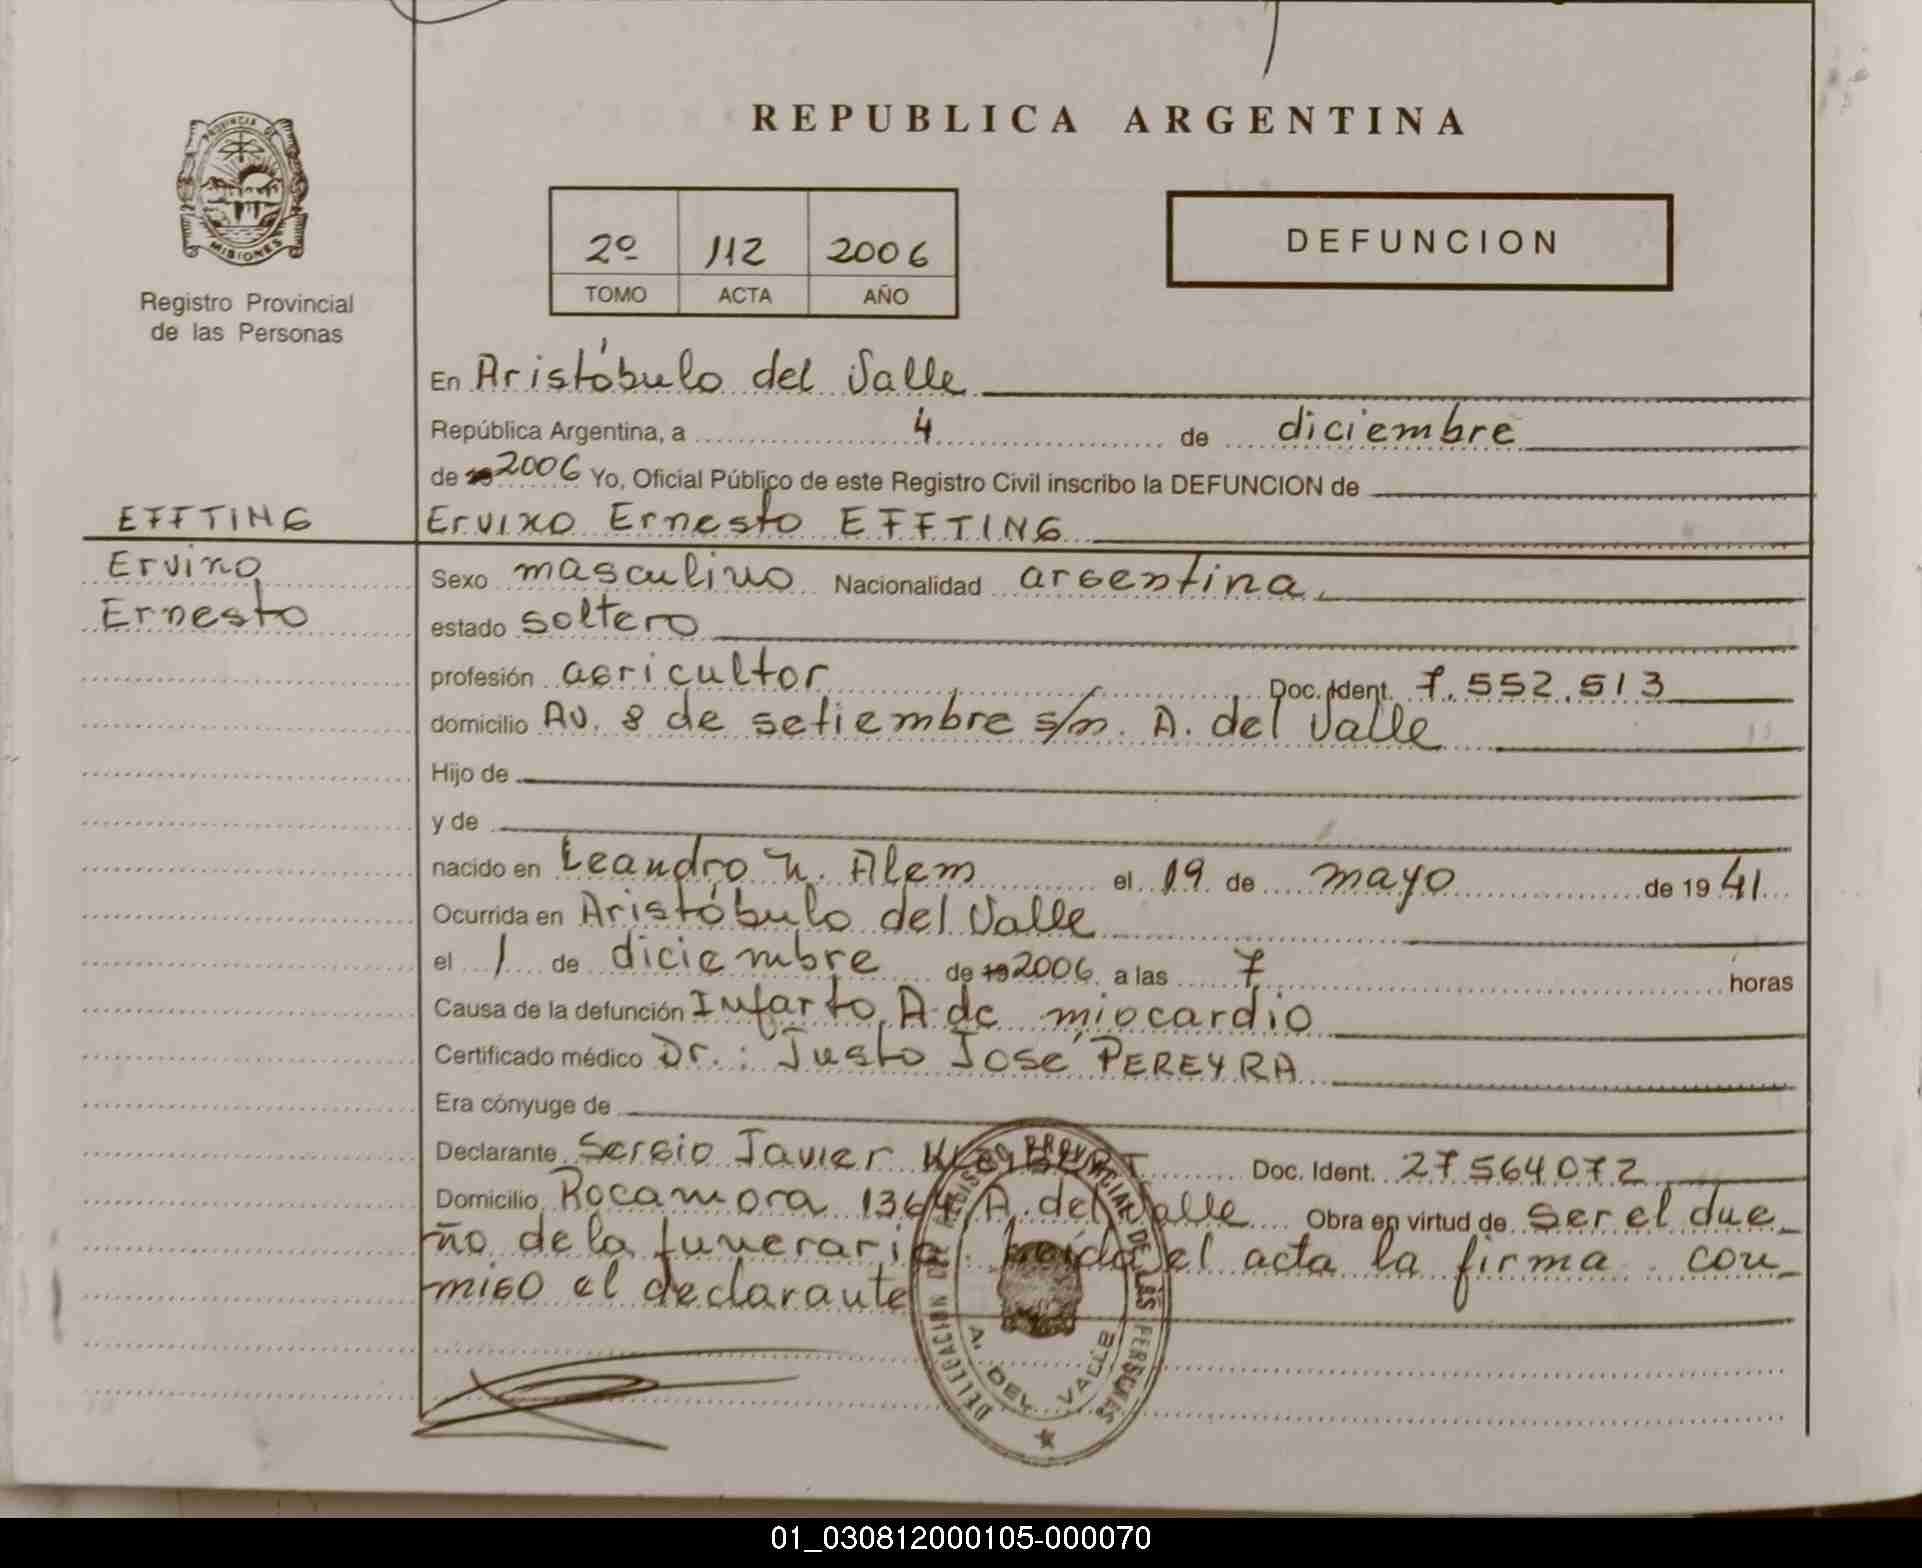 REPUBLICA ARGENTINA
PROVINCIA DE
MISIONES
Registro Provincial
de las Personas
2º 112 2006
TOMO ACTA AÑO
DEFUNCION
En Aristóbulo del Valle
República Argentina, a 4 de diciembre
de 19 2006 Yo, Oficial Público de este Registro Civil inscribo la DEFUNCION de
EFFTING
Ervino Ernesto EFFTING
Ervino
Ernesto
Sexo masculino Nacionalidad argentina
estado soltero
profesión agricultor Doc. Ident. 7.552.513
domicilio Av. 8 de setiembre s/n. A. del Valle
Hijo de
y de
nacido en Leandro N. Alem el 19 de mayo de 19 41
Ocurrida en Aristóbulo del Valle
el 1 de diciembre de 19 2006 a las 7 horas
Causa de la defunción Infarto A de miocardio
Certificado médico Dr.: Justo José PEREYRA
Era cónyuge de
Declarante Sergio Javier Doc. Ident. 27564072
Domicilio Rocamora 1364 A. del Valle Obra en virtud de ser el due
ño de la funeraria. Leída el acta la firma con
migo el declarante
DELEGACION DEL REGISTRO PROVINCIAL DE LAS PERSONAS
A. DEL VALLE
01_030812000105-000070